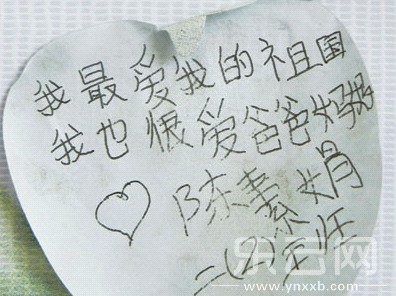 我最爱我的祖国
我也恨爱爸爸妈妈
陈素娟
二
云网
www.ynxxb.com